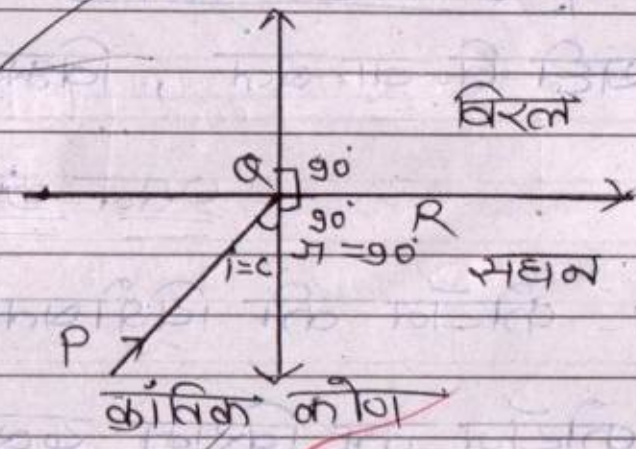 विरल
Q 90°
90° R
i=c r=90° सघन
P
क्रांतिक कोण